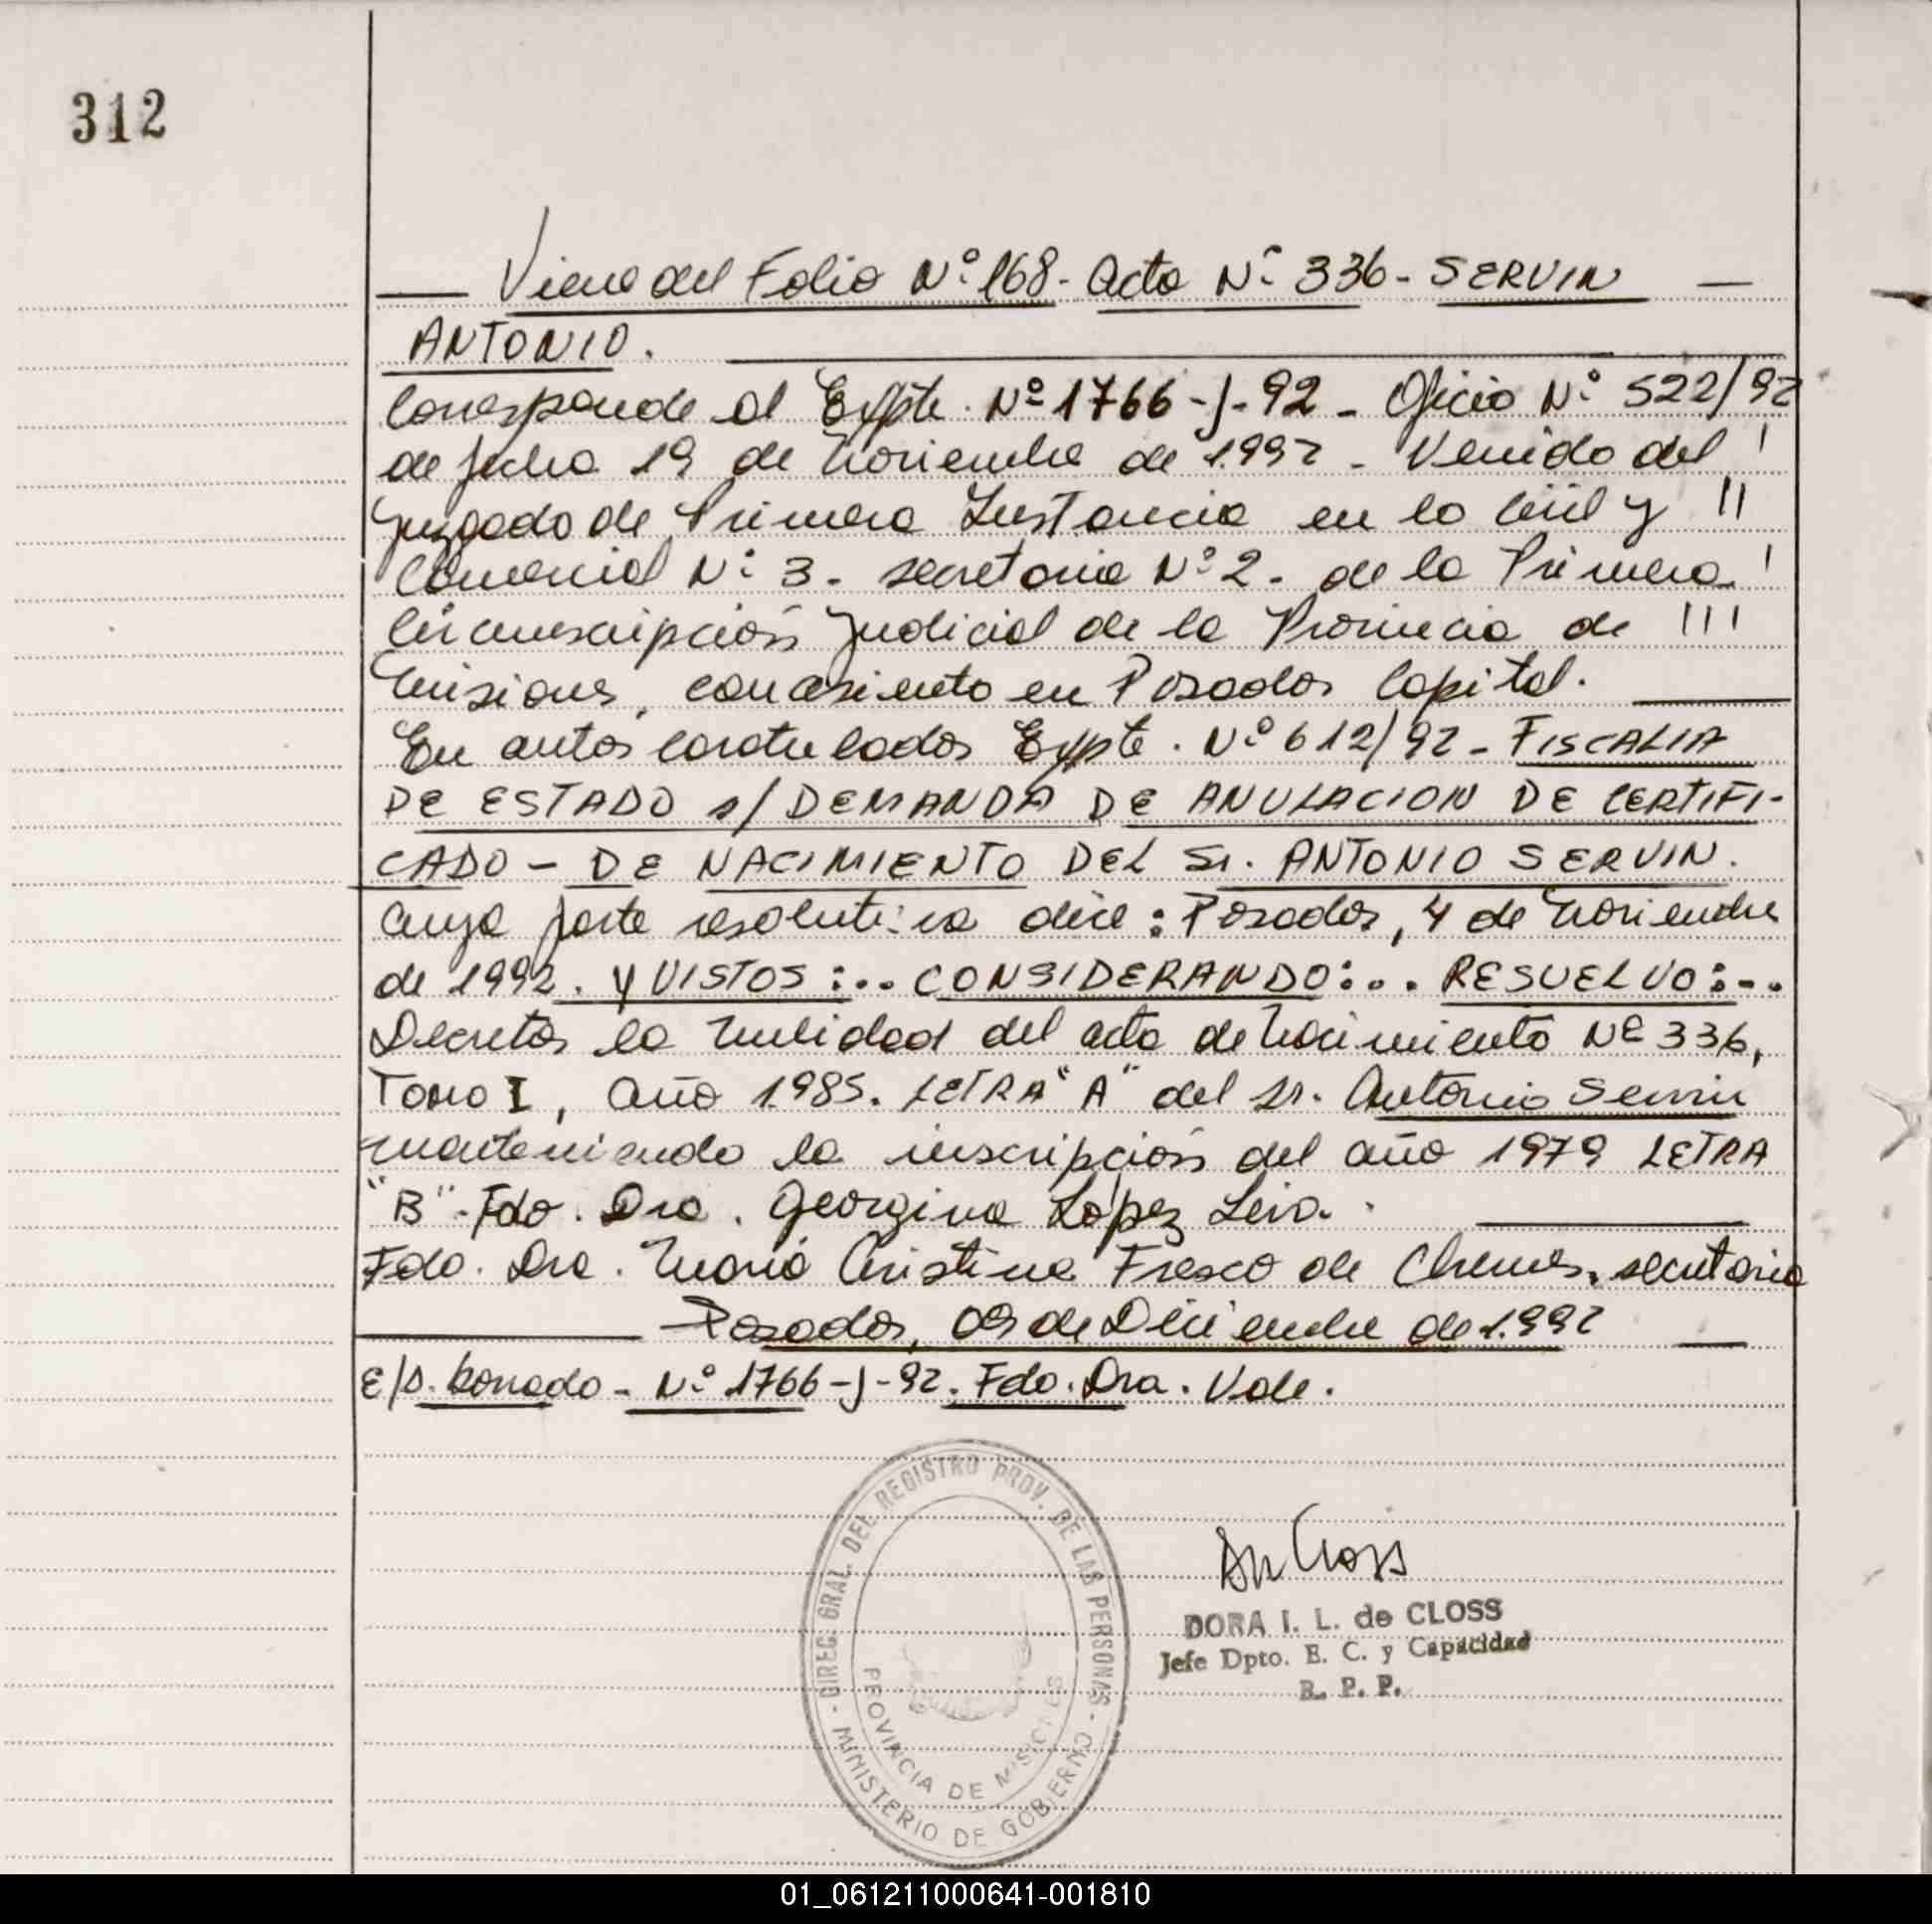 312
Viene del Folio Nº 168 - Acta Nº 336 - SERVIN
ANTONIO.
Corresponde al Expte. Nº 1766-J-92 - Oficio Nº 522/92
de fecha 19 de Noviembre de 1.992 - Venido del
Juzgado de Primera Instancia en lo Civil y
Comercial Nº 3. secretaria Nº 2. de la Primera
Circunscripción Judicial de la Provincia de
Misiones, con asiento en Posadas Capital.
En autos caratulados Expte. Nº 612/92 - FISCALIA
DE ESTADO s/ DEMANDA DE ANULACION DE CERTIFI-
CADO - DE NACIMIENTO DEL Sr. ANTONIO SERVIN.
cuya parte resolutiva dice: Posadas, 4 de Noviembre
de 1992. Y VISTOS:.. CONSIDERANDO:.. RESUELVO:..
Decretar la Nulidad del acta de Nacimiento Nº 336,
Tomo I, año 1.985. LETRA "A" del Sr. Antonio Servin
manteniendo la inscripción del año 1979 LETRA
"B". Fdo. Dra. Georgina López Leiva.
Fdo. Dra. María Cristina Fresco de Chemes, secretaria
Posadas, 09 de Diciembre de 1.992
E/S. borrado - Nº 1766-J-92. Fdo. Dra. Vale.
DIREC. GRAL. DEL REGISTRO PROV. DE LAS PERSONAS - MINISTERIO DE GOBIERNO -
PROVINCIA DE MISIONES
DORA I. L. de CLOSS
Jefe Dpto. E. C. y Capacidad
R. P. P.
01_061211000641-001810